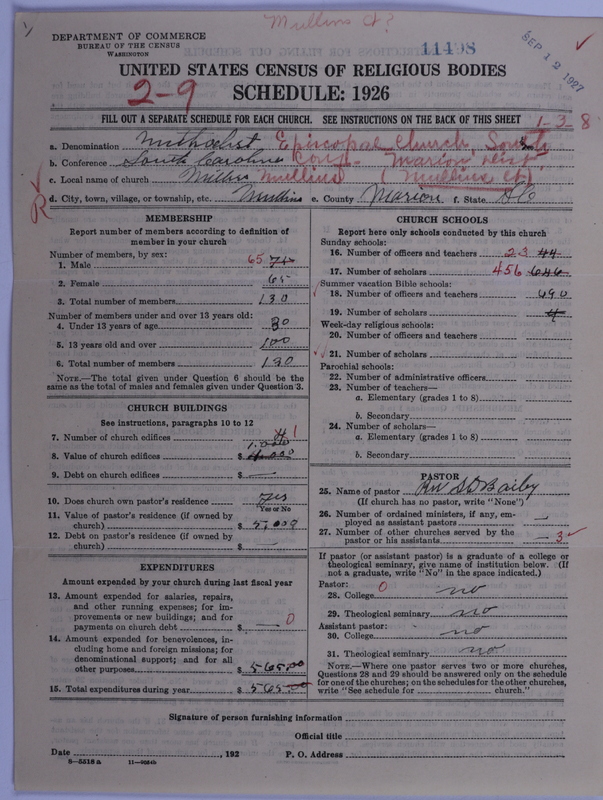 Mullins Ct?
DEPARTMENT OF COMMERCE
BUREAU OF THE CENSUS
WASHINGTON
11498
SEP 12 1927
UNITED STATES CENSUS OF RELIGIOUS BODIES
2-9
SCHEDULE: 1926
FILL OUT A SEPARATE SCHEDULE FOR EACH CHURCH. SEE INSTRUCTIONS ON THE BACK OF THIS SHEET
1-3-8
a. Denomination Methodist Episcopal Church, South
b. Conference South Carolina Conf- Marion Dist
c. Local name of church Mullins Mullins (Mullins Ct)
d. City, town, village, or township, etc. Mullins e. County Marion f. State S C
R
MEMBERSHIP
Report number of members according to definition of member in your church
Number of members, by sex:
1. Male 65
2. Female 65
3. Total number of members 130
Number of members under and over 13 years old:
4. Under 13 years of age 30
5. 13 years old and over 100
6. Total number of members 130
NOTE.—The total given under Question 6 should be the same as the total of males and females given under Question 3.
CHURCH BUILDINGS
See instructions, paragraphs 10 to 12
7. Number of church edifices 4 1
8. Value of church edifices $
9. Debt on church edifices $ —
10. Does church own pastor's residence yes
Yes or No
11. Value of pastor's residence (if owned by church) $ 5,000
12. Debt on pastor's residence (if owned by church) $
EXPENDITURES
Amount expended by your church during last fiscal year
13. Amount expended for salaries, repairs, and other running expenses; for improvements or new buildings; and for payments on church debt $ — 0
14. Amount expended for benevolences, including home and foreign missions; for denominational support; and for all other purposes $ 565.00
15. Total expenditures during year $ 565.00
CHURCH SCHOOLS
Report here only schools conducted by this church
Sunday schools:
16. Number of officers and teachers 23 44
17. Number of scholars 456 646
Summer vacation Bible schools:
18. Number of officers and teachers 690
19. Number of scholars 4
Week-day religious schools:
20. Number of officers and teachers
21. Number of scholars
Parochial schools:
22. Number of administrative officers
23. Number of teachers—
a. Elementary (grades 1 to 8)
b. Secondary
24. Number of scholars—
a. Elementary (grades 1 to 8)
b. Secondary
PASTOR
25. Name of pastor Rev S D Baily
(If church has no pastor, write "None")
26. Number of ordained ministers, if any, employed as assistant pastors —
27. Number of other churches served by the pastor or his assistants — 3
If pastor (or assistant pastor) is a graduate of a college or theological seminary, give name of institution below. (If not a graduate, write "No" in the space indicated.)
Pastor: 0
28. College no
29. Theological seminary no
Assistant pastor:
30. College no
31. Theological seminary no
NOTE.—Where one pastor serves two or more churches, Questions 28 and 29 should be answered only on the schedule for one of the churches; on the schedules for the other churches, write "See schedule for church."
Signature of person furnishing information
Official title
Date , 192 P. O. Address
8—5518 a